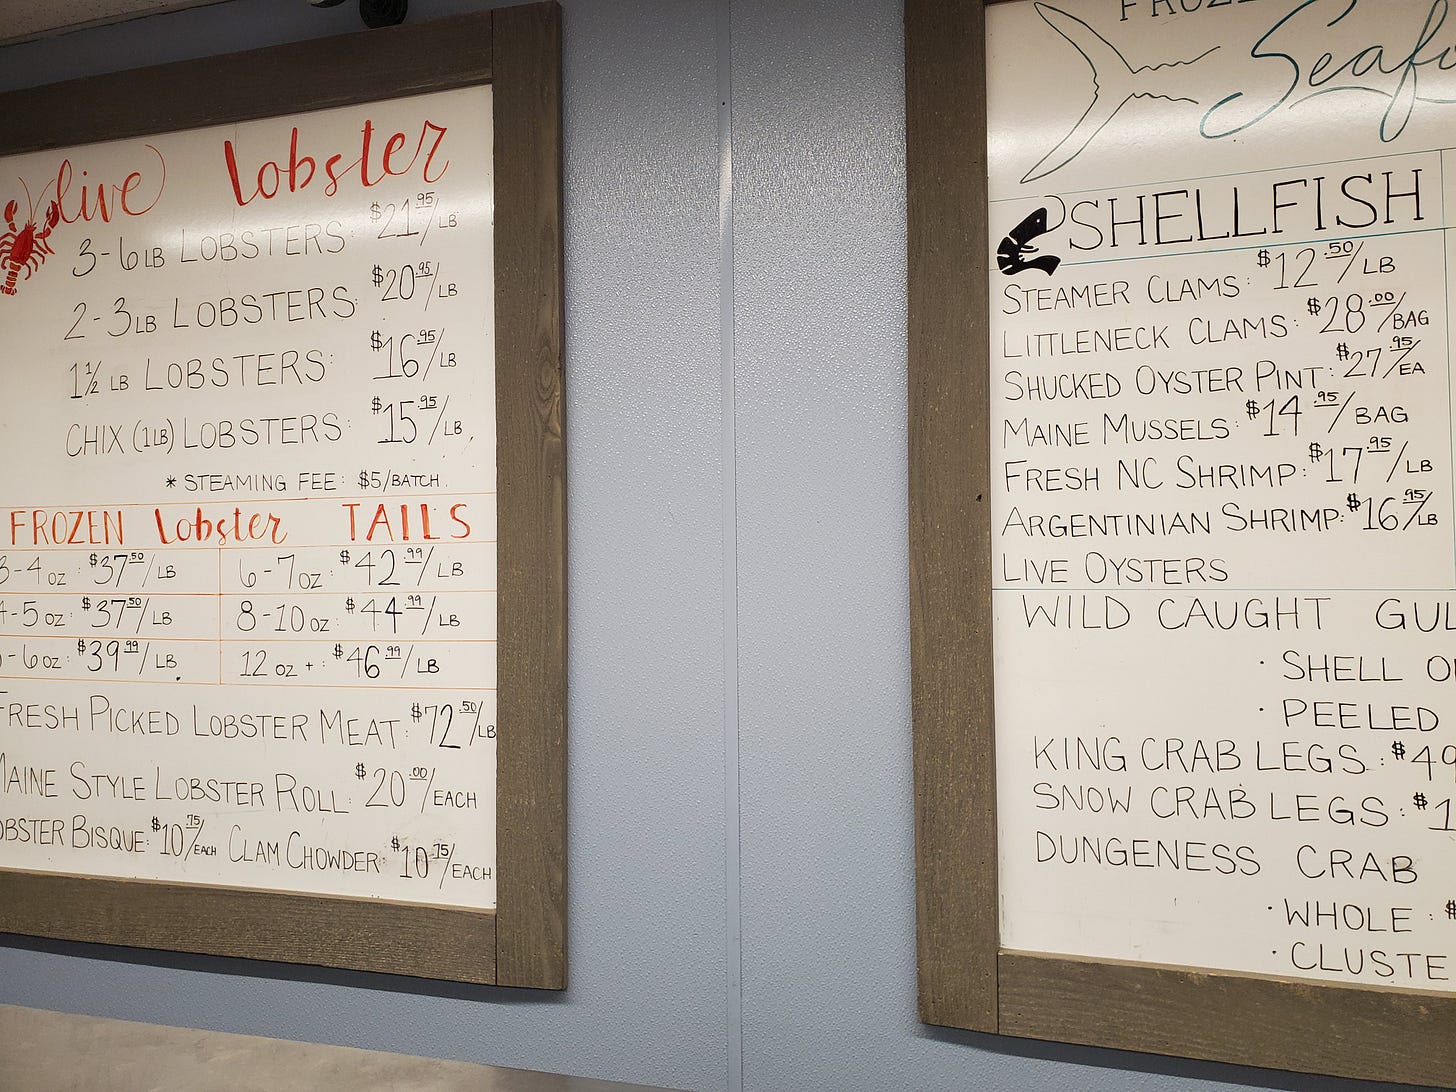 live lobster
3-6LB LOBSTERS: $21.95/LB
2-3LB LOBSTERS: $20.95/LB
1½ LB LOBSTERS: $16.95/LB
CHIX (1LB) LOBSTERS: $15.95/LB.
* STEAMING FEE: $5/BATCH.
FROZEN lobster TAILS
3-4oz: $37.50/LB 6-7oz: $42.99/LB
4-5oz: $37.50/LB 8-10oz: $44.99/LB
-6oz: $39.99/LB. 12oz +: $46.99/LB
FRESH PICKED LOBSTER MEAT: $72.50/LB
MAINE STYLE LOBSTER ROLL: $20.00/EACH
OBSTER BISQUE: $10.75/EACH CLAM CHOWDER: $10.75/EACH
FROZE
Seafo
SHELLFISH
STEAMER CLAMS: $12.50/LB
LITTLENECK CLAMS: $28.00/BAG
SHUCKED OYSTER PINT: $27.95/EA
MAINE MUSSELS: $14.95/BAG
FRESH NC SHRIMP: $17.95/LB
ARGENTINIAN SHRIMP: $16.95/LB
LIVE OYSTERS
WILD CAUGHT GUL
· SHELL O
· PEELED
KING CRAB LEGS: $49
SNOW CRAB LEGS: $1
DUNGENESS CRAB
· WHOLE: $
· CLUSTE